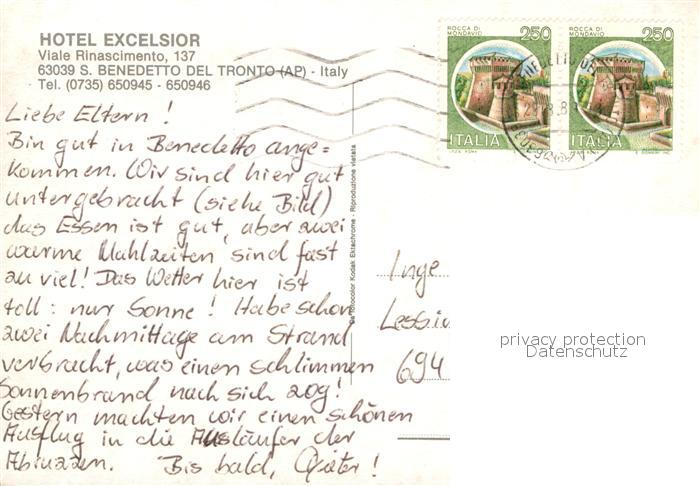 HOTEL EXCELSIOR
Viale Rinascimento, 137
63039 S. BENEDETTO DEL TRONTO (AP) - Italy
Tel. (0735) 650945 - 650946
Liebe Eltern !
Bin gut in Benedetto ange=
kommen. Wir sind hier gut
untergebracht (siehe Bild)
das Essen ist gut, aber zwei
warme Mahlzeiten sind fast
zu viel! Das Wetter hier ist
toll: nur Sonne! Habe schon
zwei Nachmittage am Strand
verbracht, was einen schlimmen
Sonnenbrand nach sich zog!
Gestern machten wir einen schönen
Ausflug in die Ausläufer der
Abruzzen. Bis bald, !
fotocolor Kodak Ektachrome - Riproduzione vietata
ROCCA DI
MONDAVIO
250
ITALIA
ROCCA DI
MONDAVIO
250
ITALIA
Inge
Lessin
694
privacy protection
Datenschutz